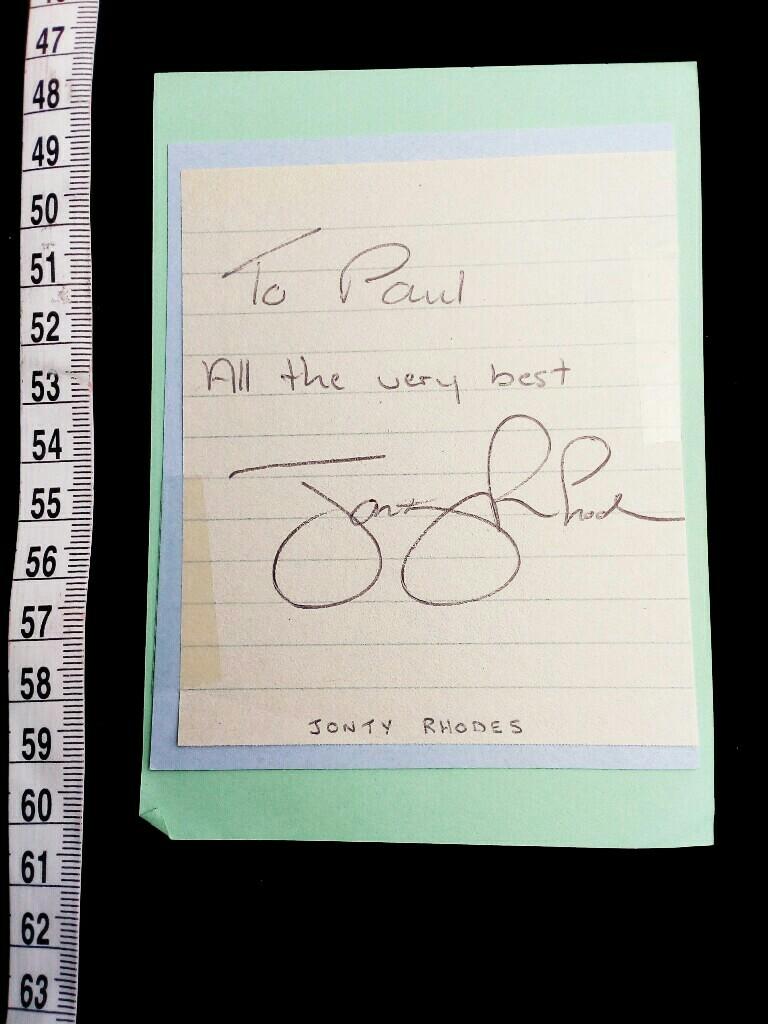 47
48
49
50
51
52
53
54
55
56
57
58
59
60
61
62
63
To Paul
All the very best
Jonty Rhodes
JONTY RHODES